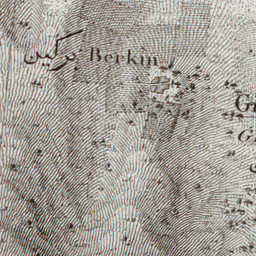 بركين Berkin
G
G